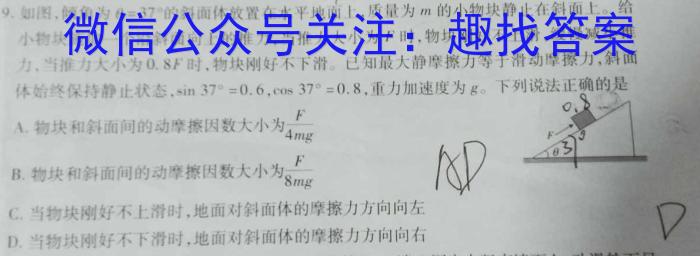 9. 如图,倾角为θ=37°的斜面体放置在水平地面上,质量为m的小物块静止在斜面上。给
微信公众号关注：趣找答案
小物块
力,当推力大小为0.8F时,物块刚好不下滑。已知最大静摩擦力等于滑动摩擦力,斜面
体始终保持静止状态,sin 37°=0.6,cos 37°=0.8,重力加速度为g。下列说法正确的是
A. 物块和斜面间的动摩擦因数大小为F/4mg
B. 物块和斜面间的动摩擦因数大小为F/8mg
C. 当物块刚好不上滑时,地面对斜面体的摩擦力方向向左
D. 当物块刚好不下滑时,地面对斜面体的摩擦力方向向右
0.8
F
θ
37
AD
D